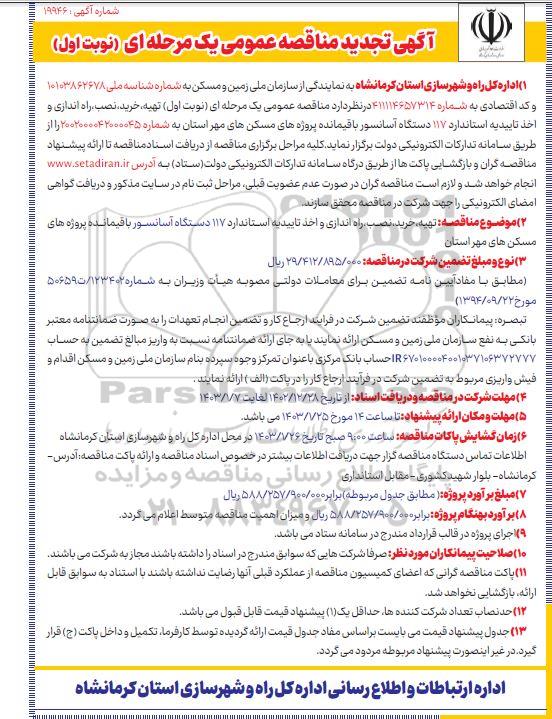 شماره آگهی : ۱۹۹۴۶
آگهی تجدید مناقصه عمومی یک مرحله ای (نوبت اول)
۱)اداره کل راه و شهرسازی استان کرمانشاه به نمایندگی از سازمان ملی زمین و مسکن به شماره شناسه ملی ۱۰۱۰۳۸۶۲۶۷۸
و کد اقتصادی به شماره ۴۱۱۱۱۴۶۵۷۳۱۴ درنظردارد مناقصه عمومی یک مرحله ای (نوبت اول) تهیه،خرید،نصب،راه اندازی و
اخذ تاییدیه استاندارد ۱۱۷ دستگاه آسانسور باقیمانده پروژه های مسکن های مهر استان به شماره ۲۰۰۲۰۰۰۰۴۲۰۰۰۰۴۵ را از
طریق سامانه تدارکات الکترونیکی دولت برگزار نماید.کلیه مراحل برگزاری مناقصه از دریافت اسنادمناقصه تا ارائه پیشنهاد
مناقصه گران و بازگشایی پاکت ها از طریق درگاه سامانه تدارکات الکترونیکی دولت(ستاد) به آدرس www.setadiran.ir
انجام خواهد شد و لازم است مناقصه گران در صورت عدم عضویت قبلی، مراحل ثبت نام در سایت مذکور و دریافت گواهی
امضای الکترونیکی را جهت شرکت در مناقصه محقق سازند.
۲)موضوع مناقصه: تهیه،خرید،نصب،راه اندازی و اخذ تاییدیه استاندارد ۱۱۷ دستگاه آسانسور باقیمانده پروژه های
مسکن های مهر استان
۳)نوع و مبلغ تضمین شرکت در مناقصه: ۲۹/۴۱۲/۸۹۵/۰۰۰ ریال
(مطابق با مفادآیین نامه تضمین برای معاملات دولتی مصوبه هیأت وزیران به شماره۱۲۳۴۰۲/ت۵۰۶۵۹
مورخ۱۳۹۴/۰۹/۲۲)
تبصره: پیمانکاران مؤظفند تضمین شرکت در فرایند ارجاع کار و تضمین انجام تعهدات را به صورت ضمانتنامه معتبر
بانکی به نفع سازمان ملی زمین و مسکن ارائه نمایند یا به جای ارائه ضمانتنامه نسبت به واریز مبالغ تضمین به حساب
IR۶۷۰۱۰۰۰۰۴۰۰۱۰۳۷۱۰۶۳۷۲۷۷۷حساب بانک مرکزی باعنوان تمرکز وجوه سپرده بنام سازمان ملی زمین و مسکن اقدام و
فیش واریزی مربوط به تضمین شرکت در فرآیند ارجاع کار را در پاکت (الف ) ارائه نمایند .
۴)مهلت شرکت در مناقصه و دریافت اسناد: از تاریخ ۱۴۰۲/۱۲/۲۸ لغایت ۱۴۰۳/۱/۷
۵)مهلت و مکان ارائه پیشنهاد:تا ساعت ۱۴ مورخ ۱۴۰۳/۱/۲۵ می باشد.
۶)زمان گشایش پاکات مناقصه: ساعت ۹:۰۰ صبح تاریخ ۱۴۰۳/۱/۲۶ در محل اداره کل راه و شهرسازی استان کرمانشاه
اطلاعات تماس دستگاه مناقصه گزار جهت دریافت اطلاعات بیشتر در خصوص اسناد مناقصه و ارائه پاکت مناقصه:آدرس-
کرمانشاه- بلوار شهیدکشوری-مقابل استانداری
۷)مبلغ برآورد پروژه:( مطابق جدول مربوطه)برابر۵۸۸/۲۵۷/۹۰۰/۰۰۰ ریال
۸)برآورد بهنگام پروژه:برابر۵۸۸/۲۵۷/۹۰۰/۰۰۰ ریال و میزان اهمیت مناقصه متوسط اعلام می گردد.
۹)اجرای پروژه در قالب قرارداد مندرج در سامانه ستاد می باشد.
۱۰)صلاحیت پیمانکاران مورد نظر: صرفا شرکت هایی که سوابق مندرج در اسناد را داشته باشند مجاز به شرکت می باشند.
۱۱)پاکت مناقصه گرانی که اعضای کمیسیون مناقصه از عملکرد قبلی آنها رضایت نداشته باشند با استناد به سوابق قابل
ارائه، بازگشایی نخواهد شد.
۱۲)حدنصاب تعداد شرکت کننده ها، حداقل یک(۱) پیشنهاد قیمت قابل قبول می باشد.
۱۳)جدول پیشنهاد قیمت می بایست براساس مفاد جدول قیمت ارائه گردیده توسط کارفرما، تکمیل و داخل پاکت (ج) قرار
گیرد.در غیر اینصورت پیشنهاد مربوطه مردود می گردد.
اداره ارتباطات و اطلاع رسانی اداره کل راه و شهرسازی استان کرمانشاه